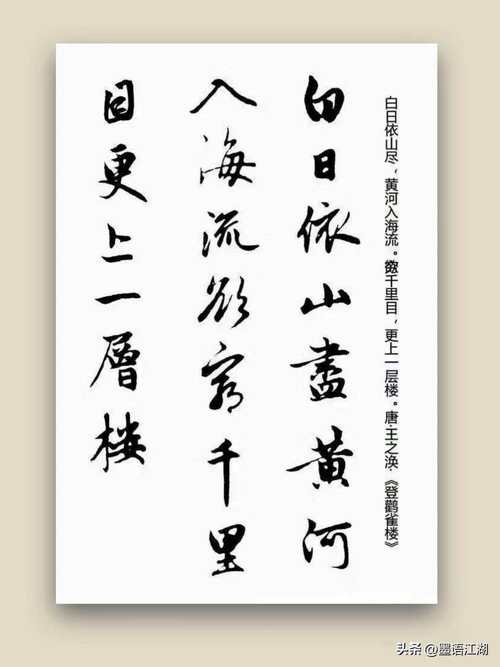 白日依山尽，黄河入海流。欲穷千里目，更上一层楼。唐.王之涣.《登鹳雀楼》
白日依山盡黄河
入海流欲窮千里
目更上一層楼
头条 @墨语江湖